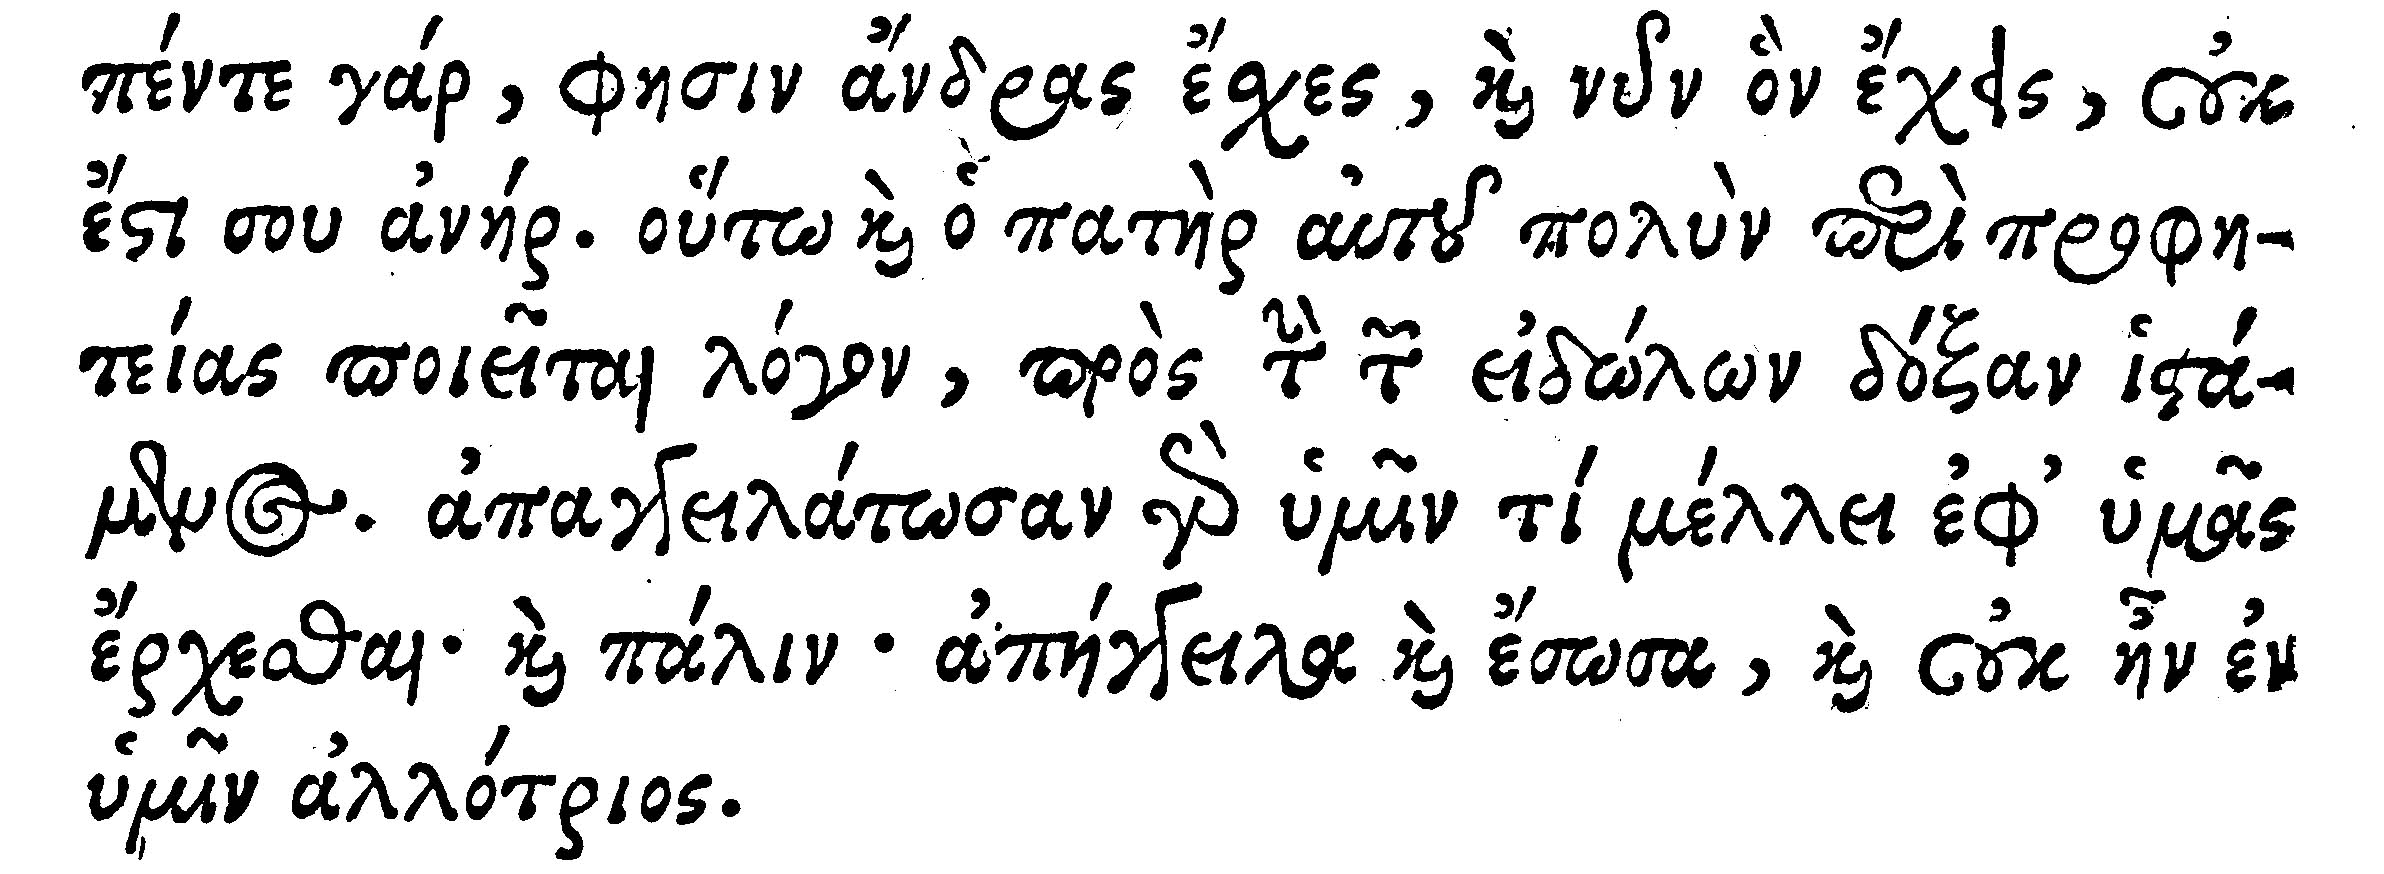 πέντε γάρ, φησιν ἄνδρας ἔσχες, καὶ νῦν ὃν ἔχεις, οὐκ
ἔστι σου ἀνήρ. οὕτω καὶ ὁ πατὴρ αὐτοῦ πολὺν περὶ προφη-
τείας ποιεῖται λόγον, πρὸς τὴν τῶν εἰδώλων δόξαν ἱστά-
μενος. ἀπαγγειλάτωσαν γὰρ ὑμῖν τί μέλλει ἐφ’ ὑμᾶς
ἔρχεσθαι· καὶ πάλιν · ἀπήγγειλα καὶ ἔσωσα, καὶ οὐκ ἦν ἐν
ὑμῖν ἀλλότριος.